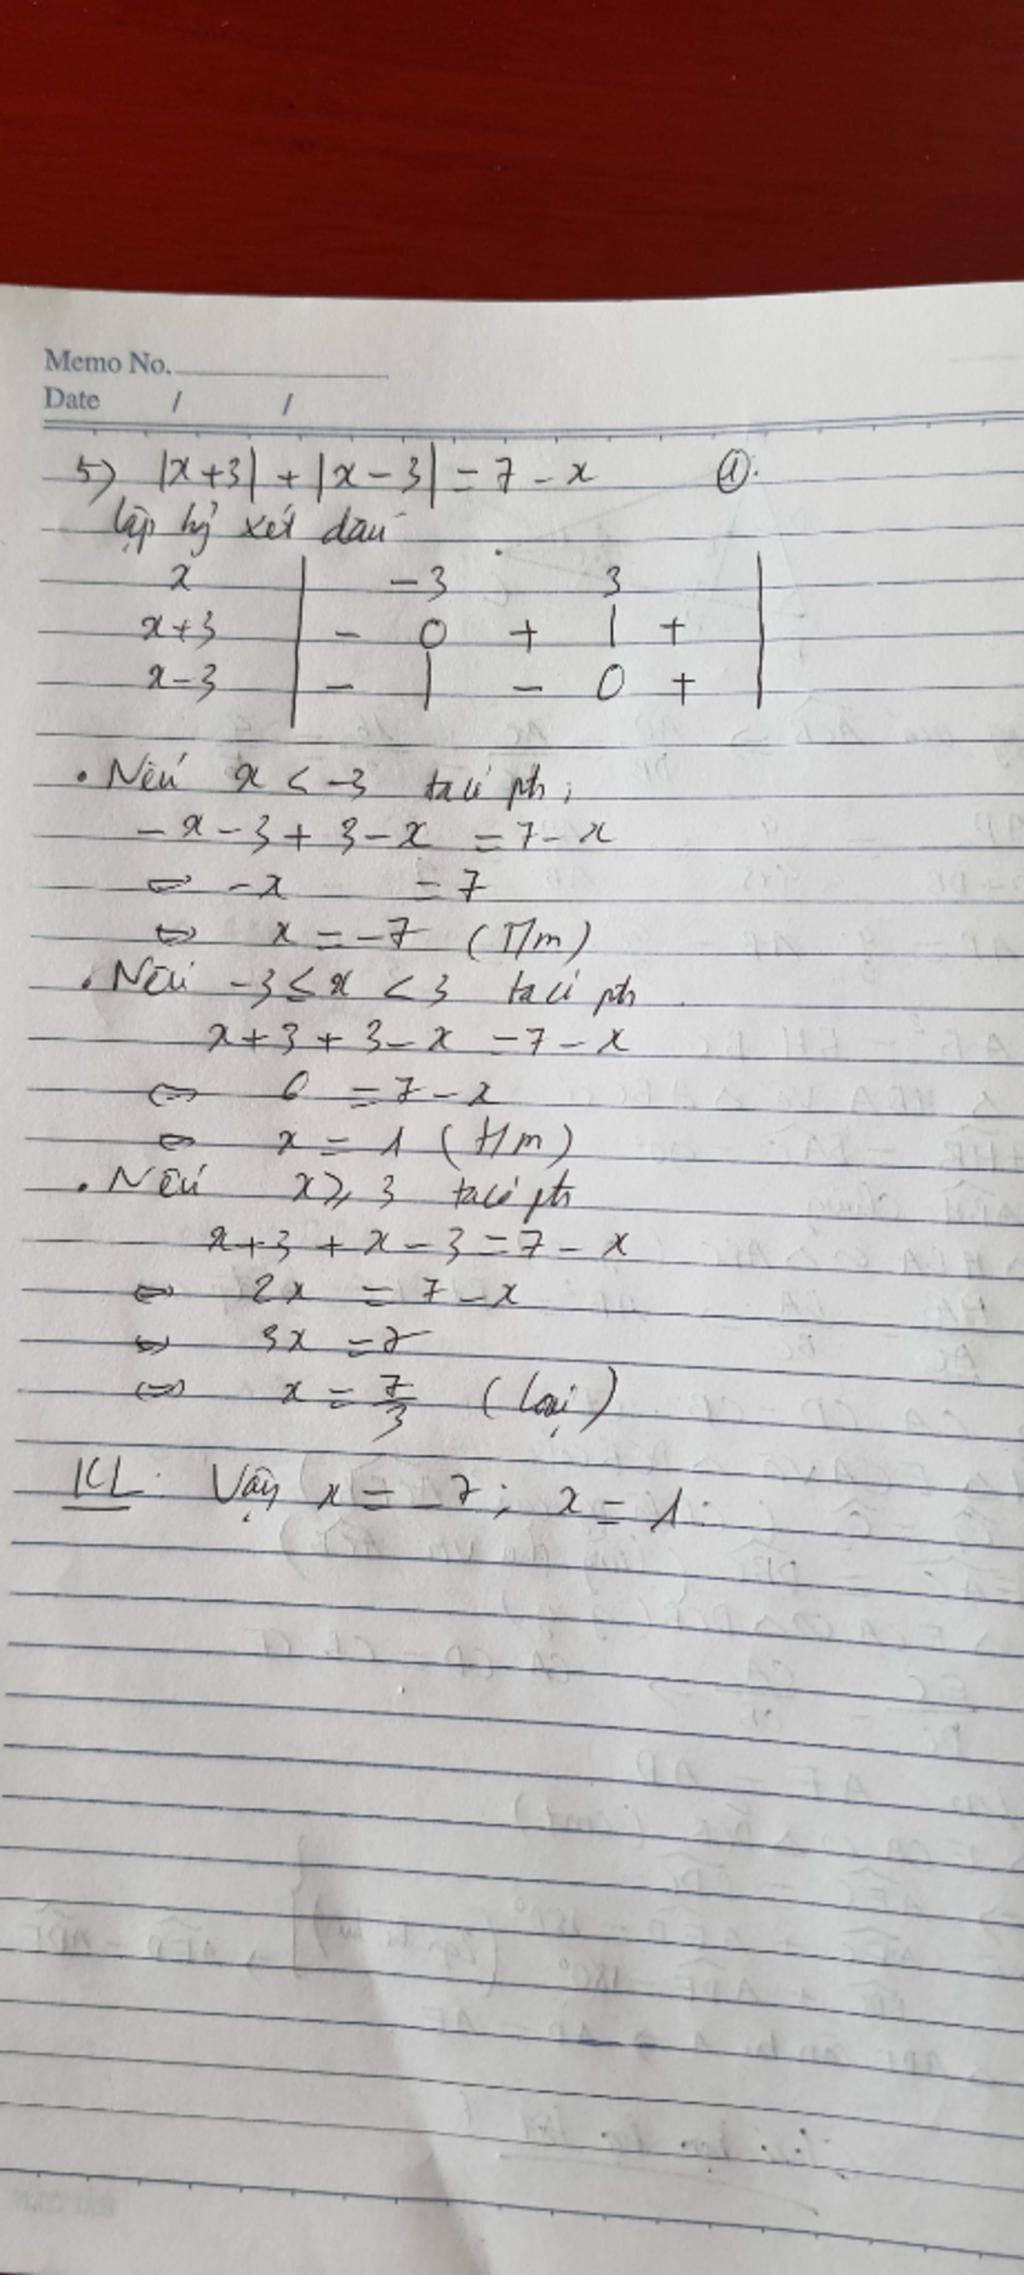 Memo No.
Date / /
5) |x+3| + |x-3| = 7 - x ①.
lập xét dấu
x | -3 3 |
x+3 | - 0 + | + |
x-3 | - | - 0 + |
. Nếu x < -3 ta có pt:
-x-3+3-x = 7-x
⇔ -x = 7
⇔ x = -7 (T/m)
. Nếu -3 ≤ x < 3 ta có pt
x+3+3-x = 7-x
⇔ 6 = 7-x
⇔ x = 1 (t/m)
. Nếu x ≥ 3 ta có pt
x+3+x-3 = 7-x
⇔ 2x = 7-x
⇔ 3x = 7
⇔ x = 7/3 (loại)
KL: Vậy x = -7; x = 1.